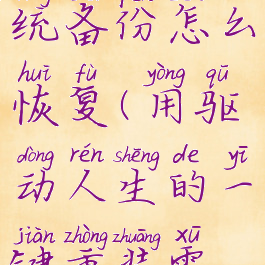 统备份怎么
huī fù yòng qū
恢复(用驱
dòng rén shēng de yī
动人生的一
jiàn zhòng zhuāng xū
键重装需